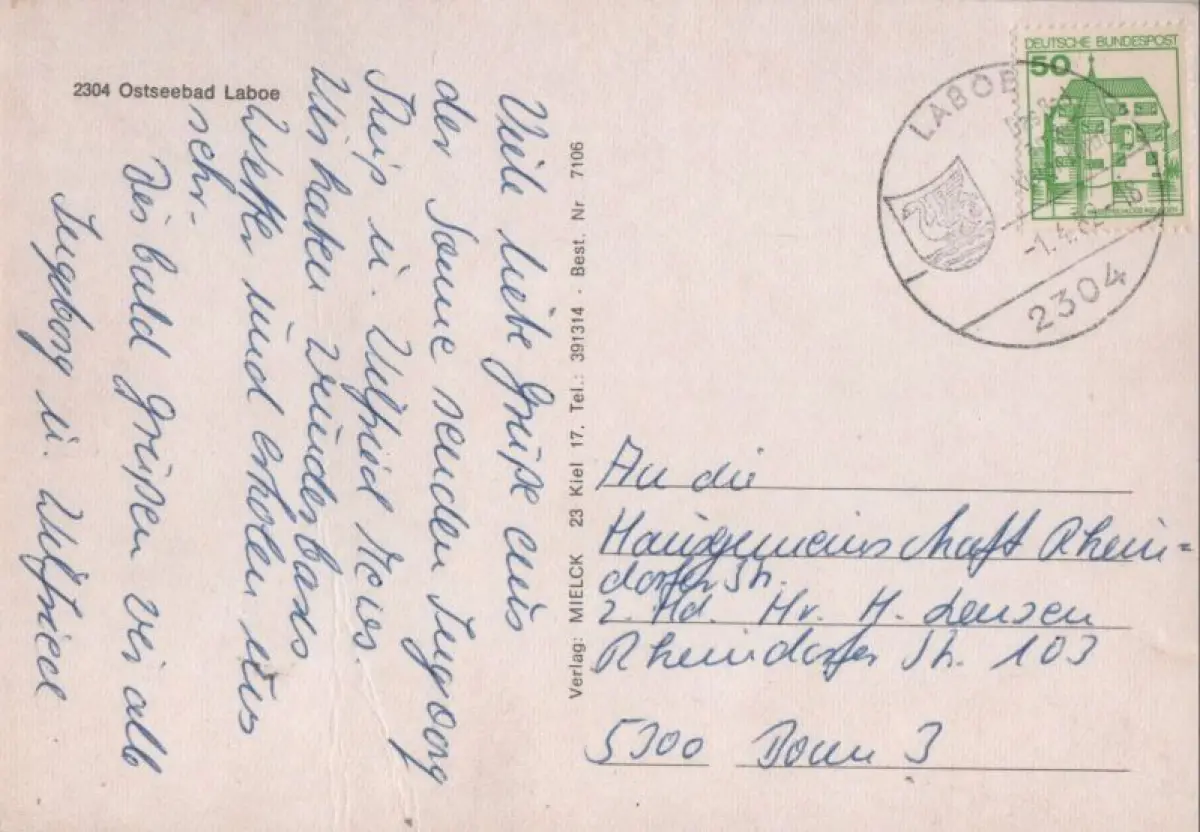 2304 Ostseebad Laboe
Viele liebe Grüße aus
der Sonne senden Ingeborg
Theis u. Wilfried
Wir haben wunderbares
Wetter und erholen uns
sehr.
Bis bald grüßen wir alle
Ingeborg u. Wilfried
Verlag: MIELCK 23 Kiel 17. Tel.: 391314 · Best. Nr 7106
DEUTSCHE BUNDESPOST
50
LABOE
-1.4.82-10
2304
An die
Hausgemeinschaft Rhein-
dorfer Str.
z. Hd. Hr. H. Jensen
Rheindorfer Str. 103
5300 Bonn 3